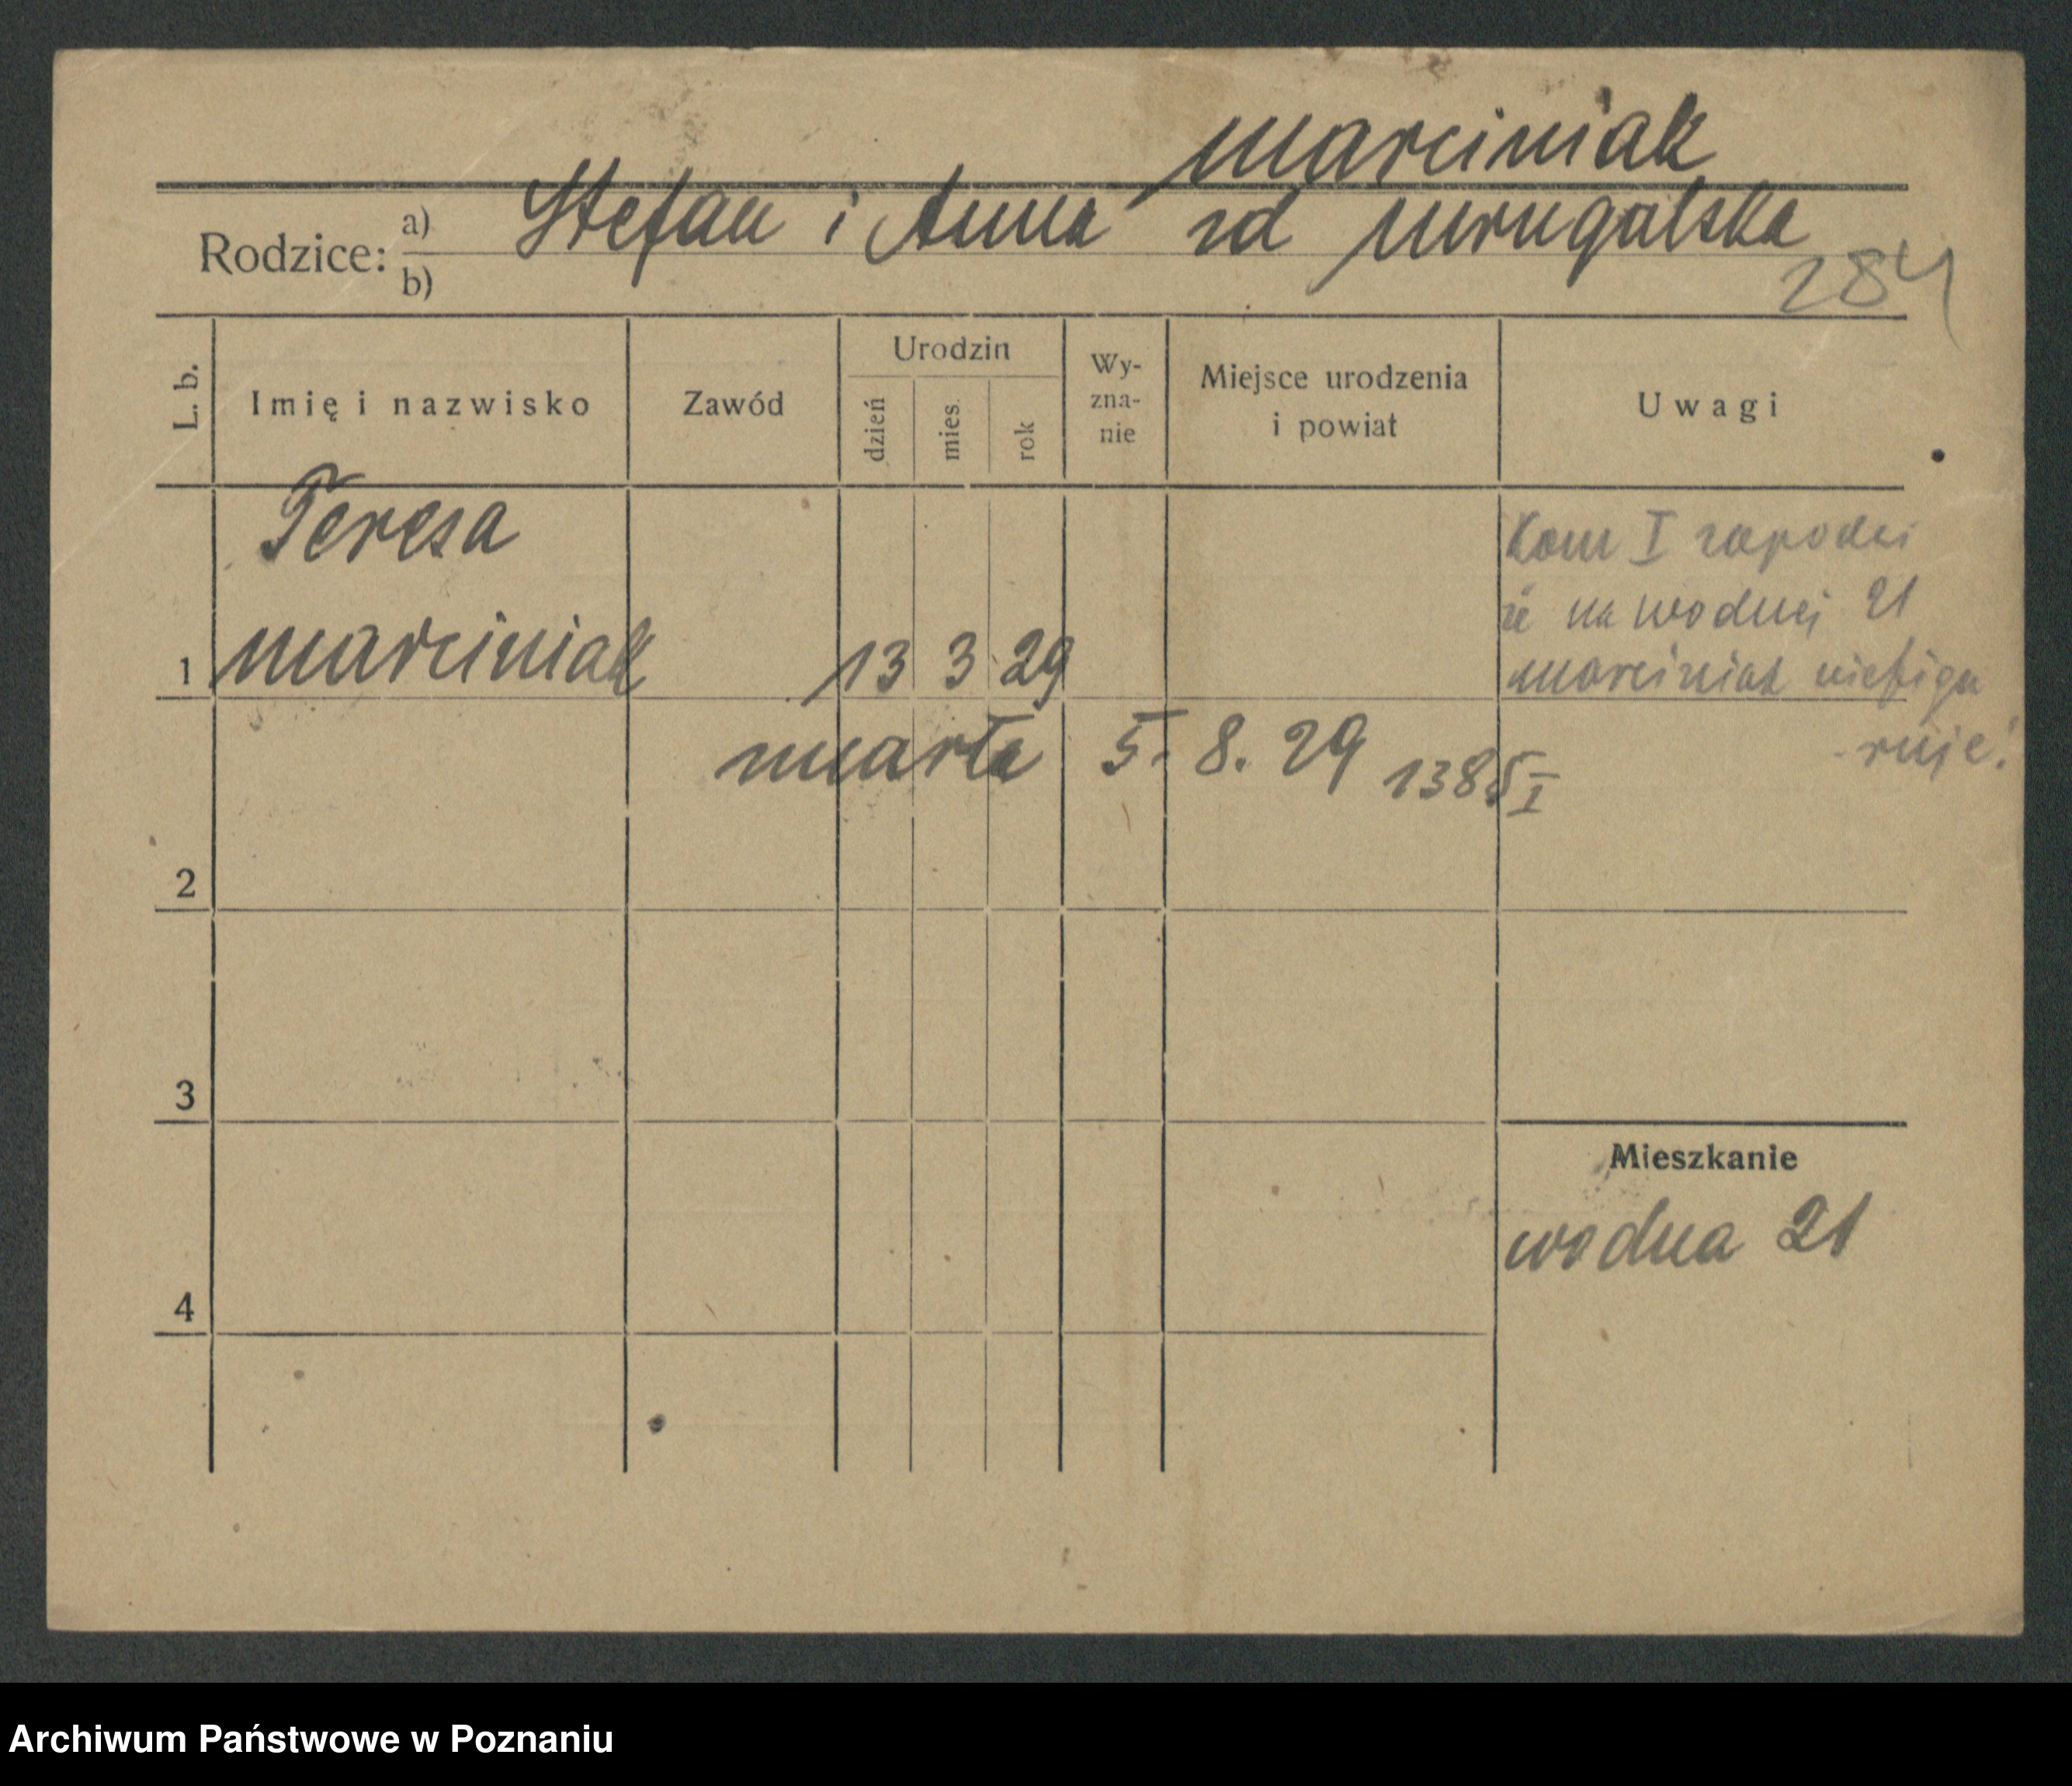 Marciniak
Rodzice: a) Stefan i Anna zd Mrugalska
b)
284
L. b.
Imię i nazwisko
Zawód
Urodzin
dzień
mies.
rok
Wy-
zna-
nie
Miejsce urodzenia
i powiat
Uwagi
Teresa
1 Marciniak 13 3 29
Kom I zapodaj
że na Wodnej 21
Marciniak niefigu
ruje!
zmarła 5. 8. 29 1385 I
2
3
Mieszkanie
Wodna 21
4
Archiwum Państwowe w Poznaniu